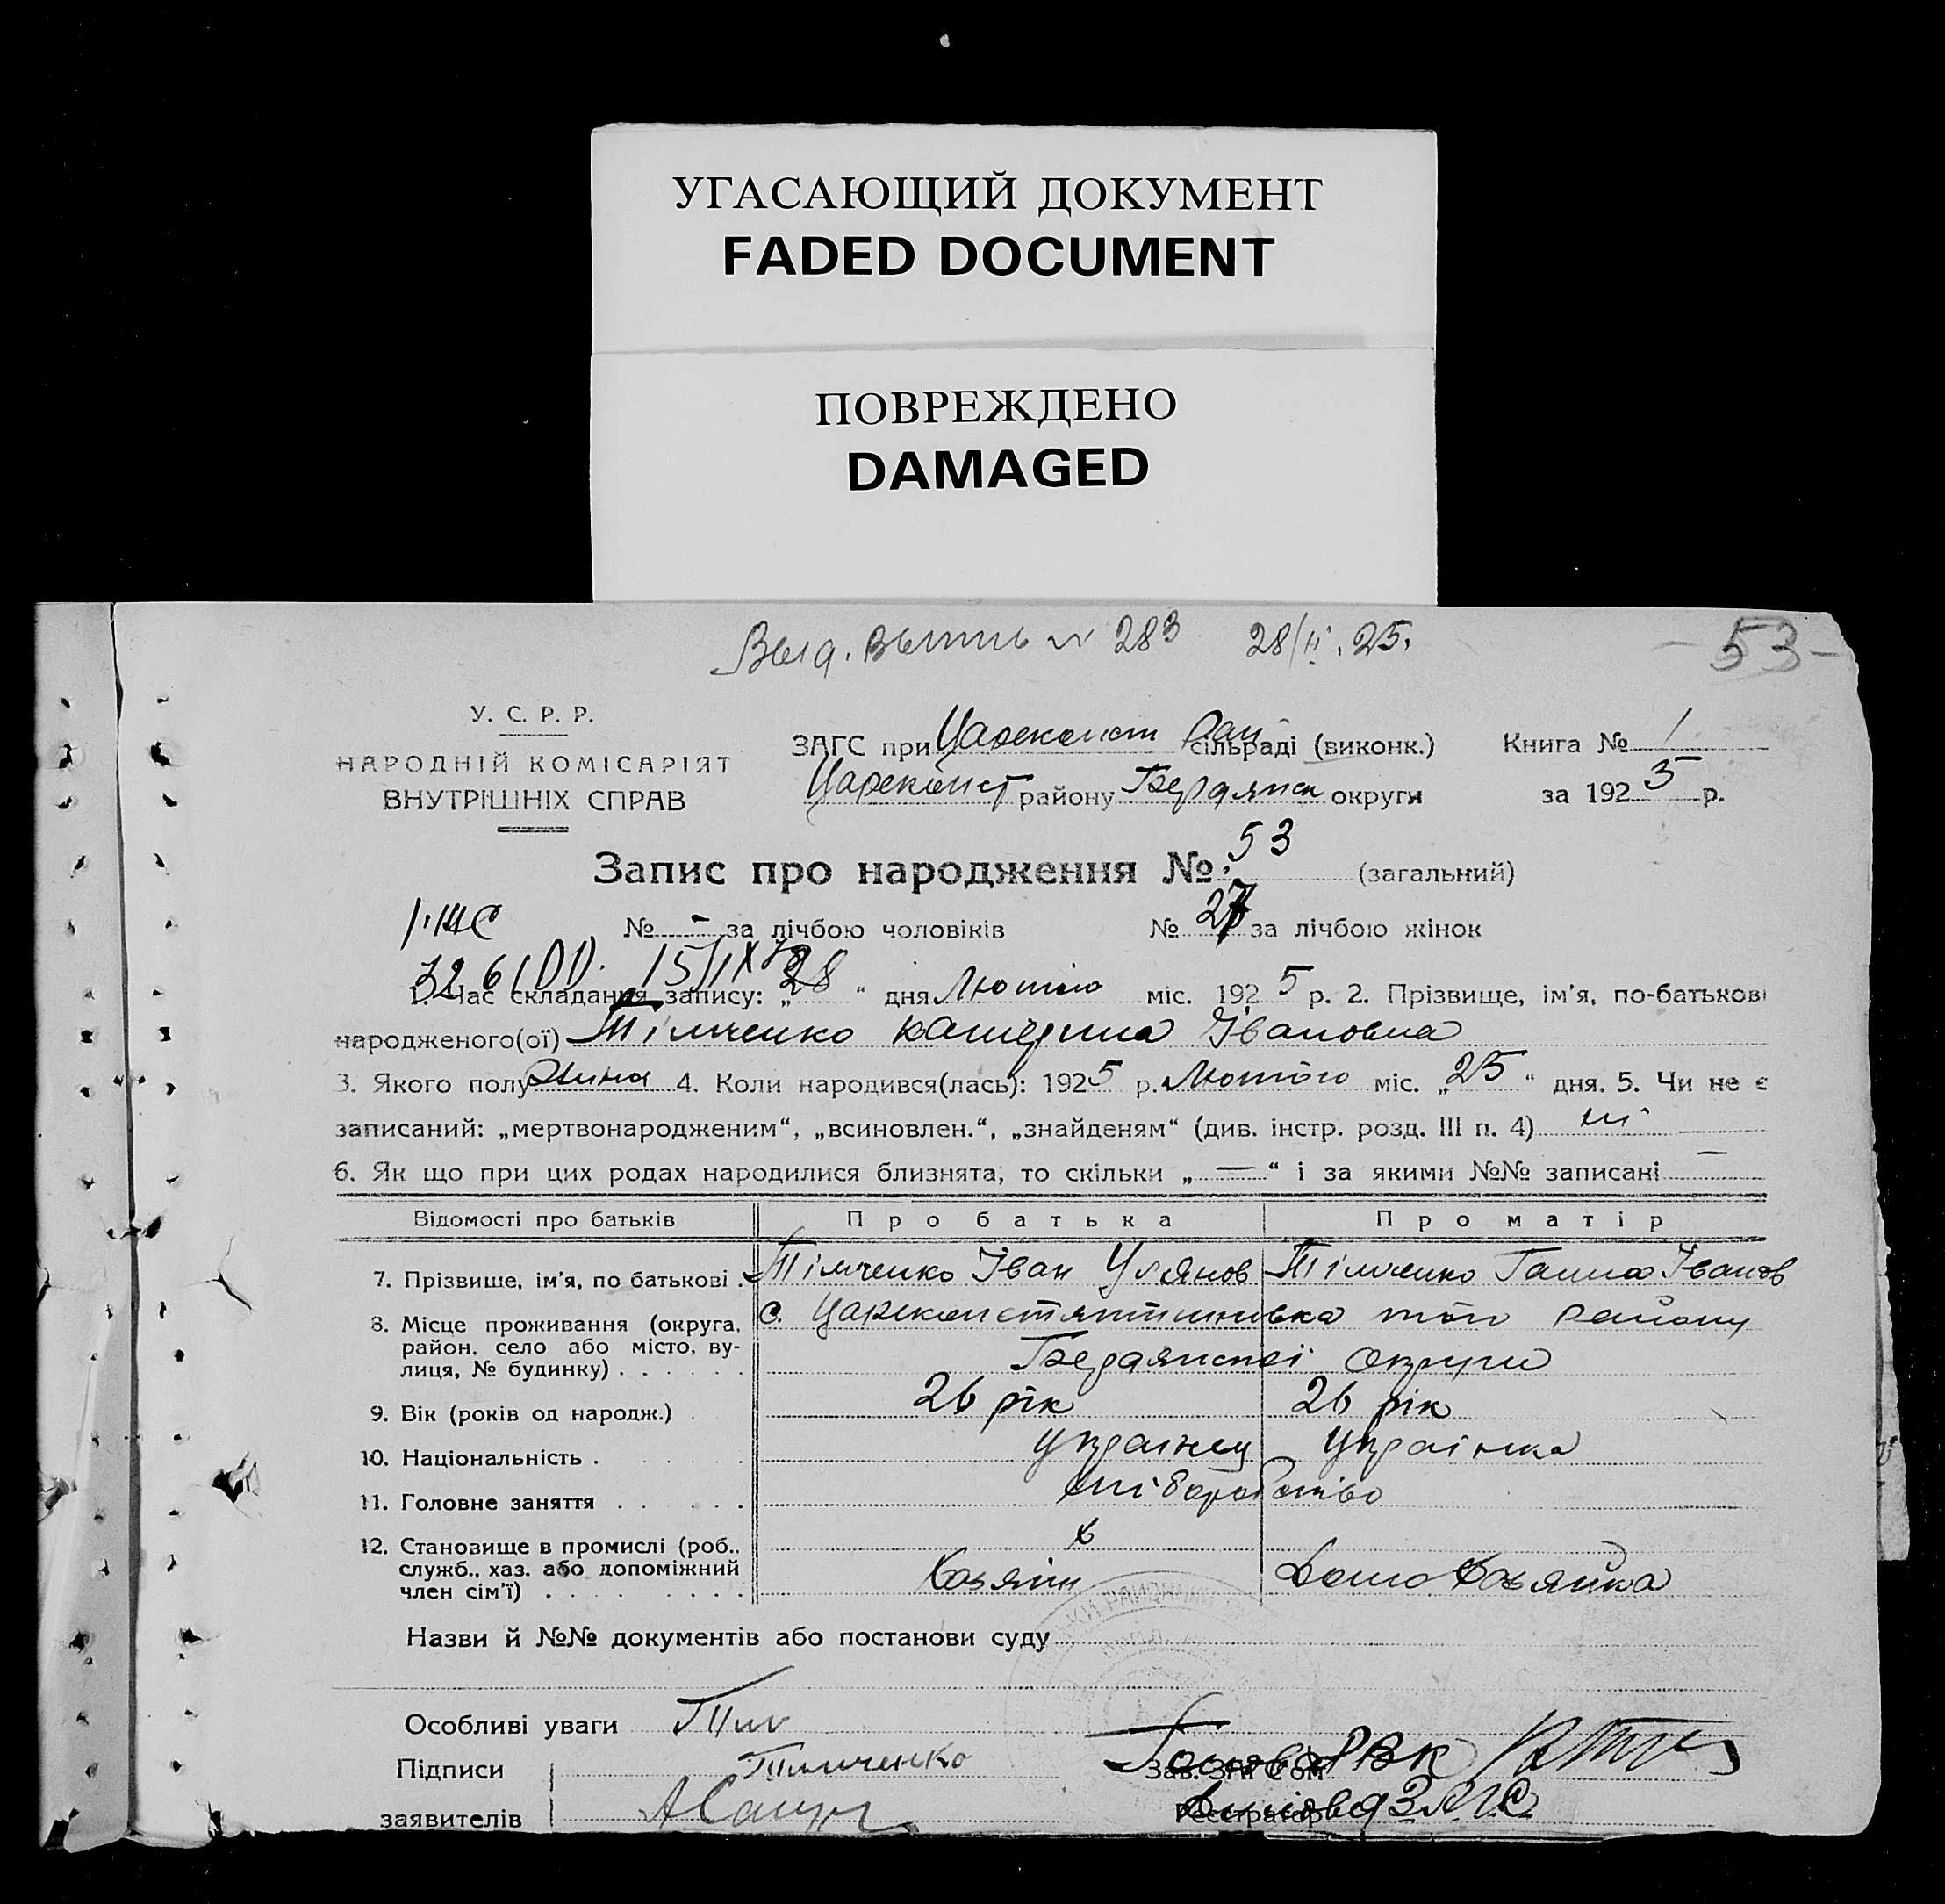 УГАСАЮЩИЙ ДОКУМЕНТ
FADED DOCUMENT
ПОВРЕЖДЕНО
DAMAGED
Выд. выпись № 283 28/II.25.
- 53 -
У. С. Р. Р.
НАРОДНІЙ КОМІСАРІЯТ
ВНУТРІШНІХ СПРАВ
ЗАГС при Цареконст Рай сільраді (виконк.)
Книга № 1
Цареконст району Бердянск округи
за 1925 р.
Запис про народження № 53 (загальний)
№ - за лічбою чоловіків № 27 за лічбою жінок
1. Час складання запису: „28“ дня Лютого міс. 1925 р. 2. Прізвище, ім'я, по-батькові
народженого(ої) Тімченко Катерина Івановна
3. Якого полу жіноч 4. Коли народився(лась): 1925 р. Лютого міс. „25“ дня. 5. Чи не є
записаний: „мертвонародженим“, „всиновлен.“, „знайденям“ (див. інстр. розд. III п. 4) ні
6. Як що при цих родах народилися близнята, то скільки „—“ і за якими №№ записані —
Відомості про батьків Про батька Про матір
7. Прізвише, ім'я, по батькові . Тімченко Іван Улянов Тімченко Ганна Іванов
8. Місце проживання (округа, район, село або місто, вулиця, № будинку) . . . . . . с. Цареконстянтиновка того району
Бердянської округи
9. Вік (років од народж.) . 26 рік 26 рік
10. Національність . українец українка
11. Головне заняття . . . . . .
12. Становище в промислі (роб., служб., хаз. або допоміжний член сім'ї) . . . . Хозяїн Домохозяйка
Назви й №№ документів або постанови суду
Особливі уваги
Підписи Тимченко
Зав. ЗАГС'ом Голова РВК
заявителів
Реєстратор